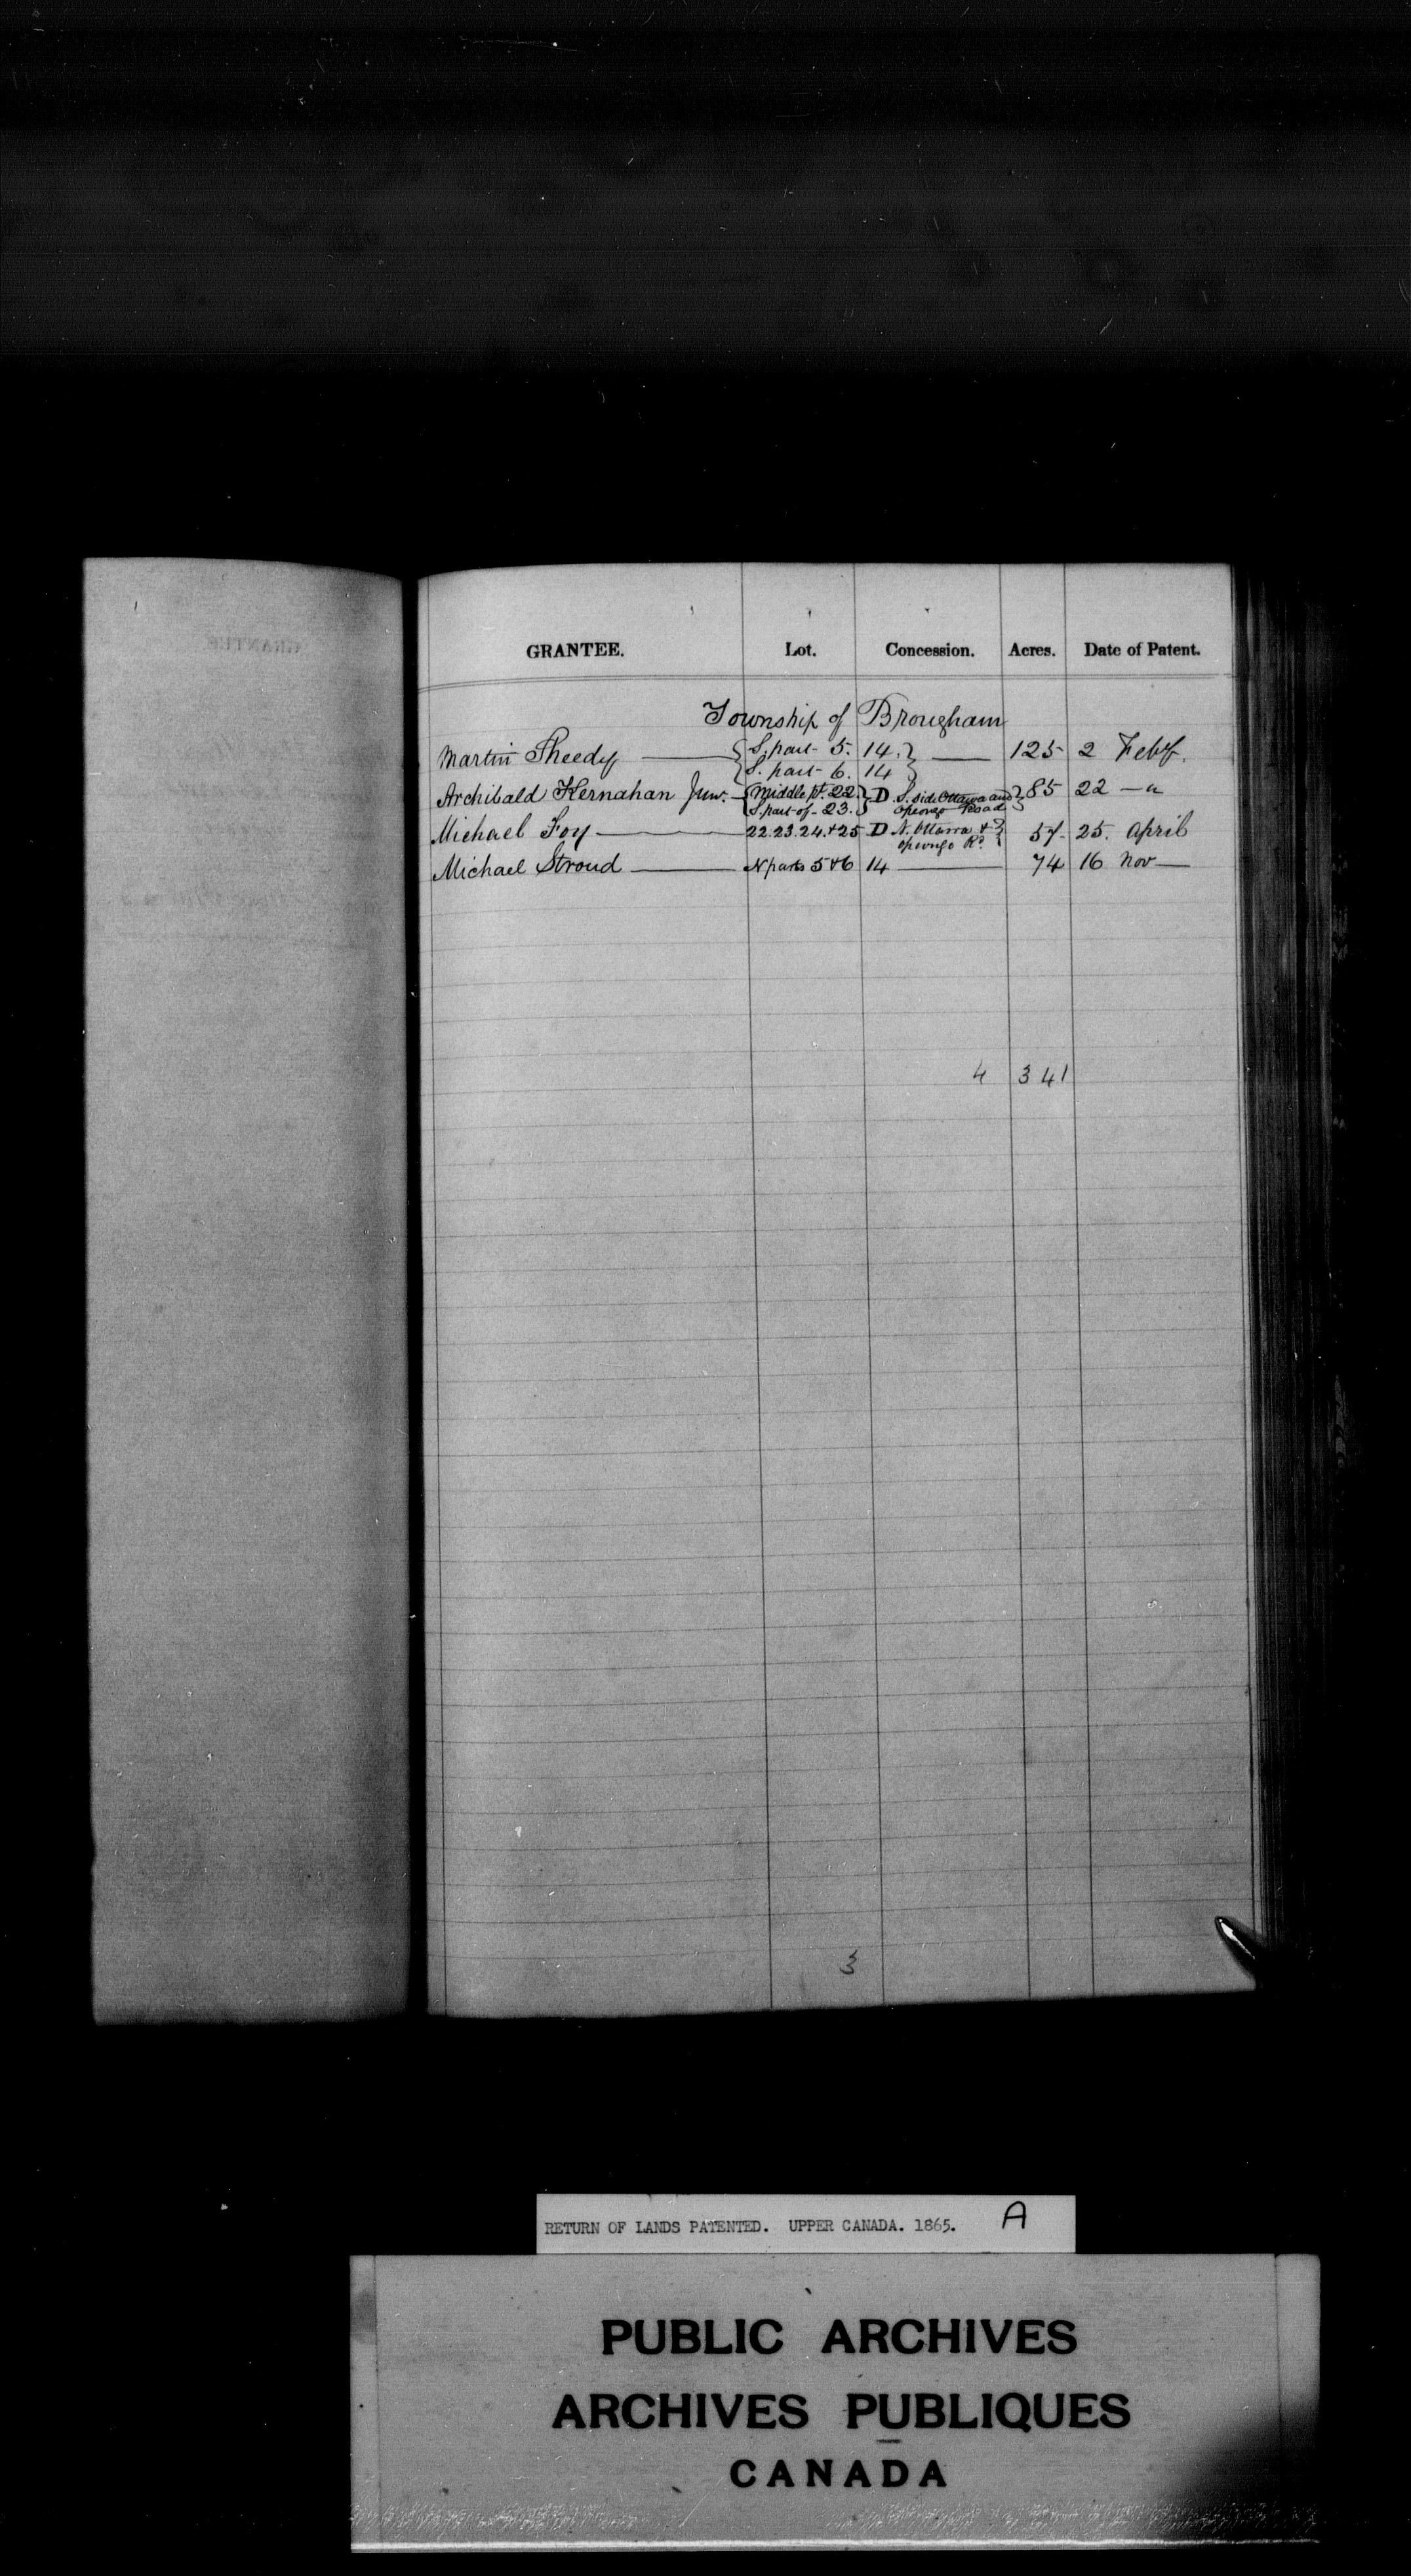 GRANTEE. Lot. Concession. Acres. Date of Patent.
Township of Brougham
Martin Sheedy { S. part 5. 14. } 125 2 Feby.
{ S. part 6. 14 }
Archibald Kernahan Junr. { Middle pt. 22. } D S. side Ottawa and } 85 22 — "
{ S. part of 23. } Opeongo Road
Michael Foy 22.23.24.+25 D N. Ottawa + } 57 25. April
Opeongo Rd.
Michael Stroud N parts 5+6 14 74 16 Nov
4 341
3
RETURN OF LANDS PATENTED. UPPER CANADA. 1865. A
PUBLIC ARCHIVES
ARCHIVES PUBLIQUES
CANADA